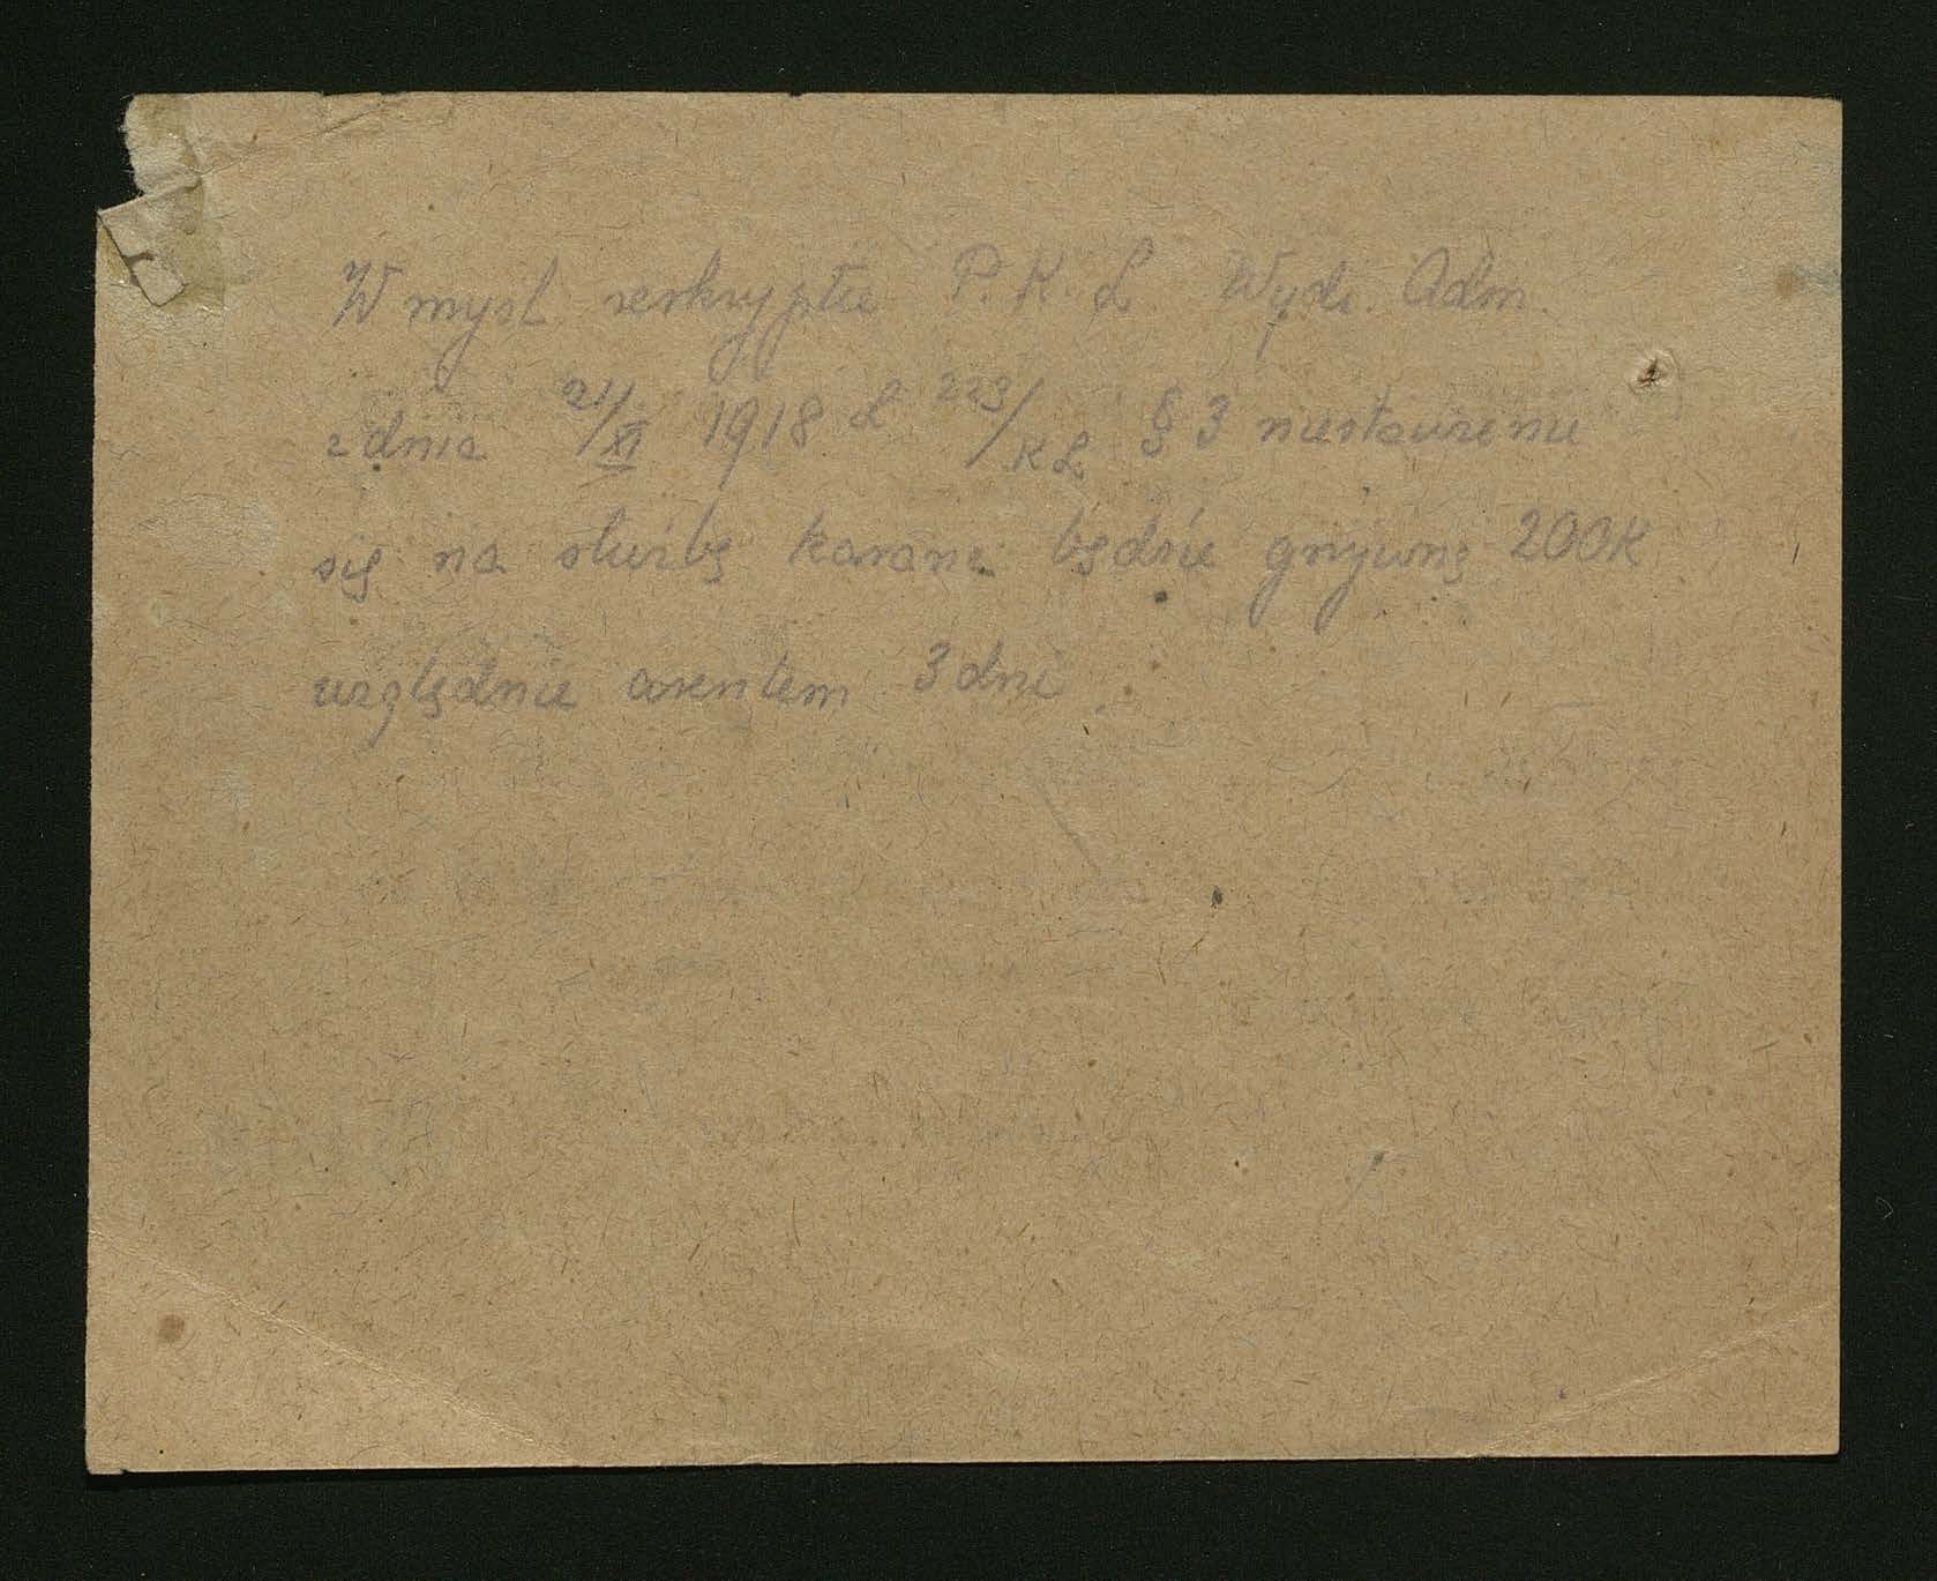 W myśl reskryptu P. K. L. Wydz. Adm.
z dnia 21/XI 1918 L 223/KL § 3 niestawienie
się na służbę karane będzie grzywną 200K
względnie aresztem 3 dni.